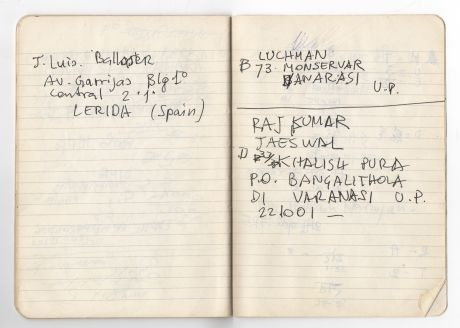 J. Luis. Ballester
Av. Garrijas Blq 1º
Central 2º 1ª
LERIDA (Spain)
LUCHMAN
B 73 MONSERVAR
BANARASI
U.P.
RAJ KUMAR
JAESWAL
D KHALISH PURA
P.O. BANGALITHOLA
DI VARANASI U.P.
221001 —